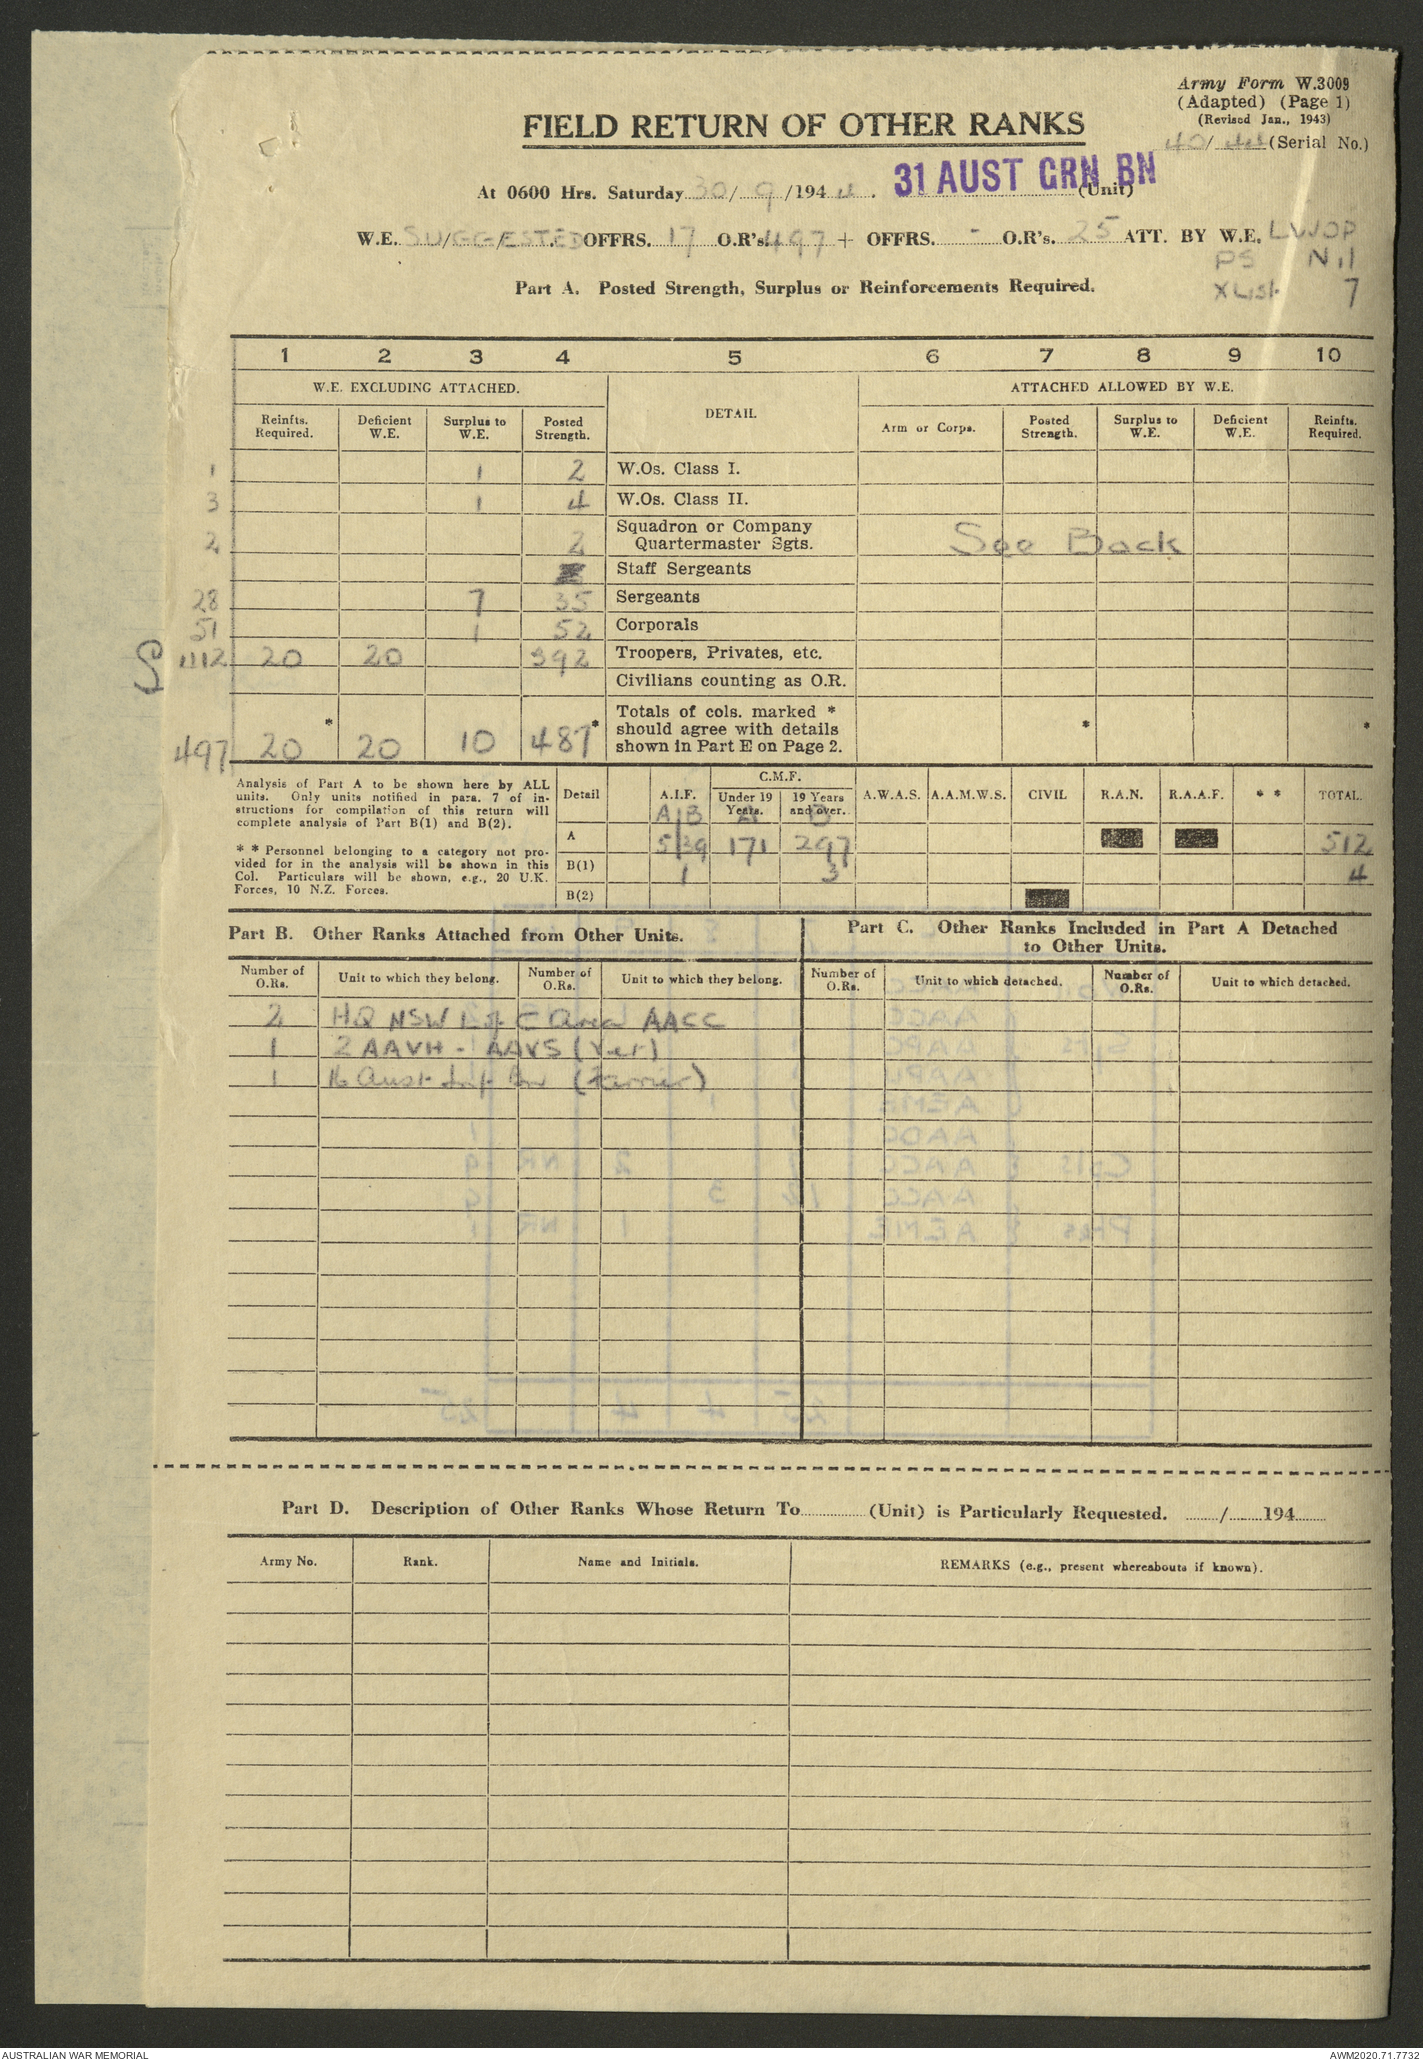 Army Form W.3009
(Adapted) (Page 1)
(Revised Jan., 1943)
40/44 (Serial No.)
FIELD RETURN OF OTHER RANKS
At 0600 Hrs. Saturday 30/ 9 /1944. 31 AUST GRN BN (Unit)
W.E. SU/GG/ESTED OFFRS. 17 O.R's. 497 + OFFRS. - O.R's. 25 ATT. BY W.E. LWOP
PS Nil
X List 7
Part A. Posted Strength, Surplus or Reinforcements Required.
1 2 3 4 5 6 7 8 9 10
W.E. EXCLUDING ATTACHED. DETAIL ATTACHED ALLOWED BY W.E.
Reinfts. Required. Deficient W.E. Surplus to W.E. Posted Strength. Arm or Corps. Posted Strength. Surplus to W.E. Deficient W.E. Reinfts. Required.
1 1 2 W.Os. Class I.
3 1 4 W.Os. Class II.
2 2 Squadron or Company Quartermaster Sgts. See Back
Staff Sergeants
28 7 35 Sergeants
51 1 52 Corporals
20 20 392 Troopers, Privates, etc.
Civilians counting as O.R.
497 20 * 20 10 487 * Totals of cols. marked * should agree with details shown in Part E on Page 2. * *
Analysis of Part A to be shown here by ALL
units. Only units notified in para. 7 of in-
structions for compilation of this return will
complete analysis of Part B(1) and B(2).
* * Personnel belonging to a category not pro-
vided for in the analysis will be shown in this
Col. Particulars will be shown, e.g., 20 U.K.
Forces, 10 N.Z. Forces.
Detail A.I.F. C.M.F. Under 19 Years. 19 Years and over. A.W.A.S. A.A.M.W.S. CIVIL R.A.N. R.A.A.F. * * TOTAL.
A B A B
A 5 39 171 297 512
B(1) 1 3 4
B(2)
Part B. Other Ranks Attached from Other Units.
Part C. Other Ranks Included in Part A Detached
to Other Units.
Number of O.Rs. Unit to which they belong. Number of O.Rs. Unit to which they belong. Number of O.Rs. Unit to which detached. Number of O.Rs. Unit to which detached.
2 HQ NSW L of C Area AACC
1 2 AAVH - AAVS (Vet)
1 16 Aust Inf Bn (Farrier)
Part D. Description of Other Ranks Whose Return To (Unit) is Particularly Requested. / 194
Army No. Rank. Name and Initials. REMARKS (e.g., present whereabouts if known).
AUSTRALIAN WAR MEMORIAL AWM2020.71.7732